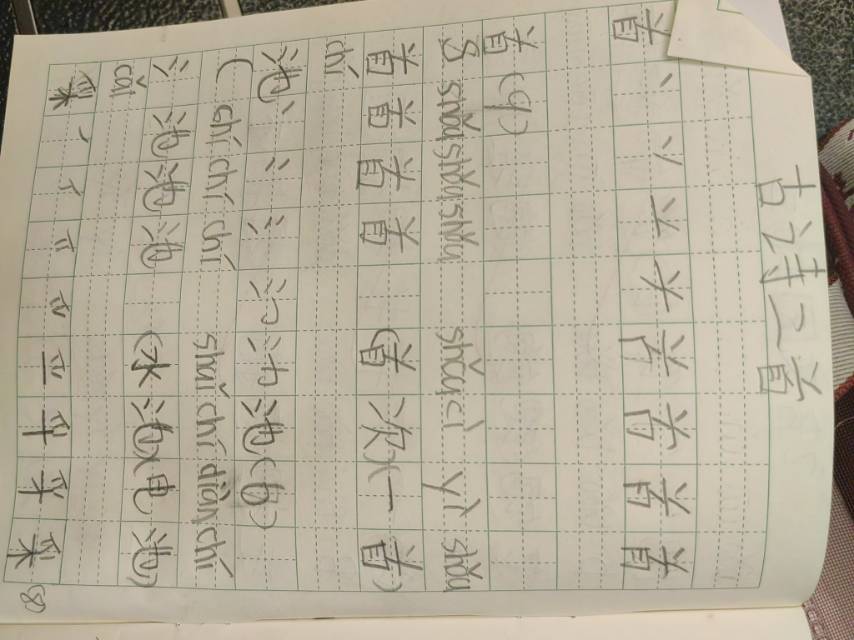 古诗二首
首 丶 丷 䒑 首
首(9)
8 shǒu shǒu shǒu shǒu cì yì shǒu
首 首 首 首 (首 次)(一 首)
chí
池 丶 冫 氵 池(6)
( chí chí chí shuǐ chí diàn chí
氵 池 池 池 (水 池)(电 池)
cǎi
采 采 (8)